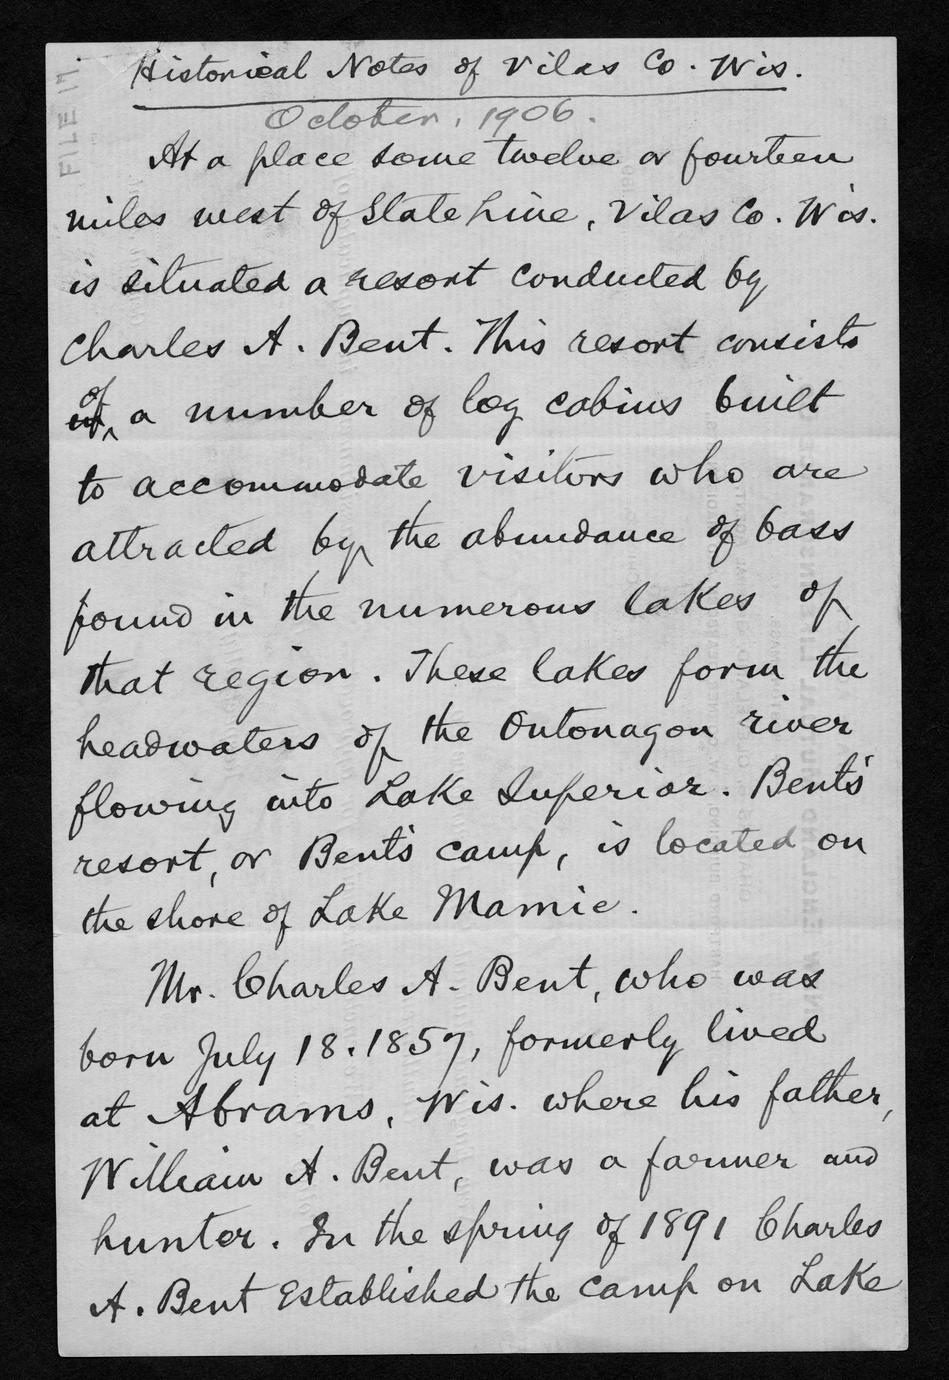 Historical Notes of Vilas Co. Wis.
October, 1906.
At a place some twelve or fourteen
miles west of State Line, Vilas Co. Wis.
is situated a resort conducted by
Charles A. Bent. This resort consists
of
a number of log cabins built
to accommodate visitors who are
attracted by the abundance of bass
found in the numerous lakes of
that region. These lakes form the
headwaters of the Ontonagon river
flowing into Lake Superior. Bent's
resort, or Bent's camp, is located on
the shore of Lake Mamie.
Mr. Charles A. Bent, who was
born July 18. 1857, formerly lived
at Abrams, Wis. where his father,
William A. Bent, was a farmer and
hunter. In the spring of 1891 Charles
A. Bent Established the camp on Lake